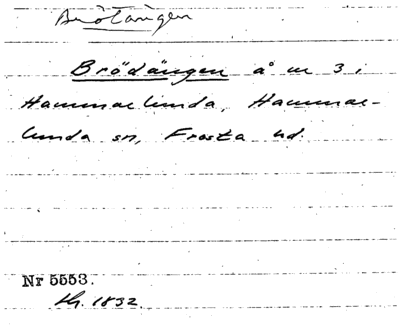 Brötången
Brödängen å nr 3 i
Hammarlunda, Hammar-
lunda sn, Frosta hd.
Nr 5553.
1832.